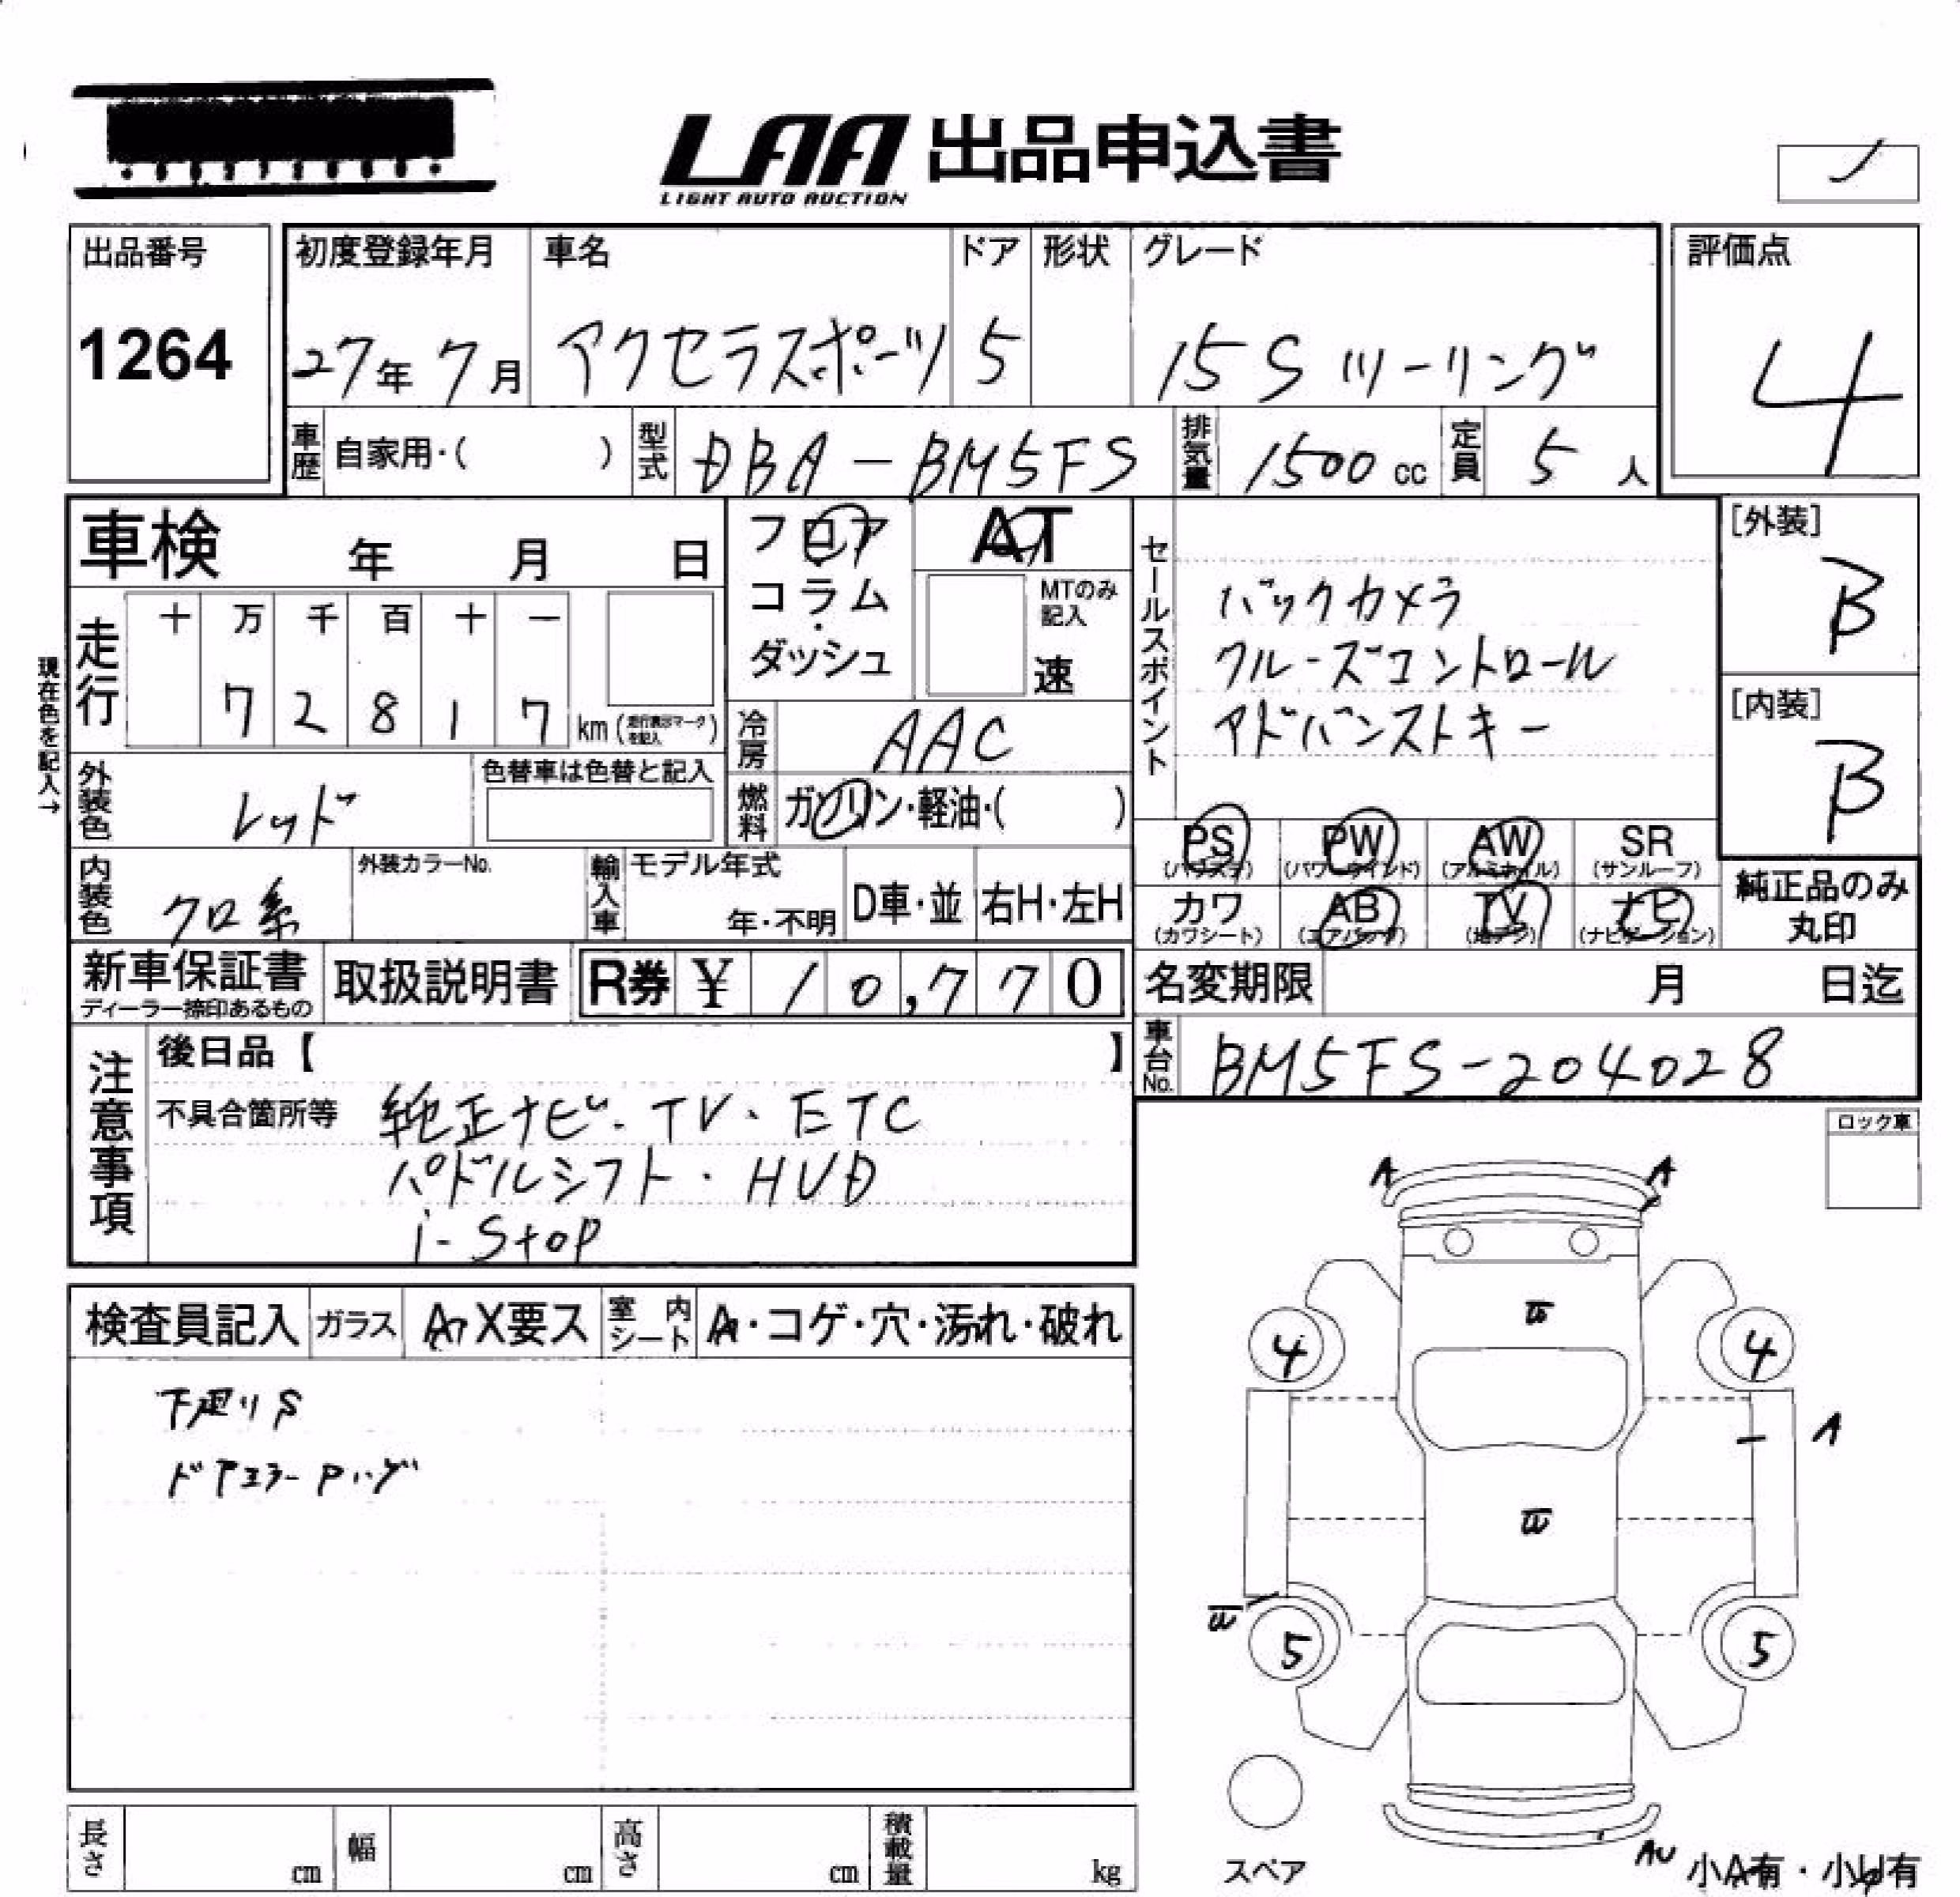 LAA 出品申込書
LIGHT AUTO AUCTION
出品番号
1264
初度登録年月
27年 7月
車名
アクセラスポーツ
ドア
5
形状
グレード
15S ツーリング
評価点
4
車歴
自家用・( )
型式
DBA-BM5FS
排気量
1500 cc
定員
5 人
車検 年 月 日
フロア
コラム
・
ダッシュ
AT
MTのみ
記入
速
セールスポイント
バックカメラ
クルーズコントロール
アドバンストキー
[外装]
B
[内装]
B
現在色を記入→
走行
十 万 千 百 十 一
7 2 8 1 7
km (走行表示マークを記入)
冷房
AAC
燃料
ガソリン・軽油・( )
外装色
レッド
色替車は色替と記入
内装色
クロ系
外装カラーNo.
輸入車
モデル年式
年・不明
D車・並
右H・左H
PS
(パワステ)
PW
(パワーウインド)
AW
(アルミホイル)
SR
(サンルーフ)
カワ
(カワシート)
AB
(エアバッグ)
TV
(地デジ)
ナビ
(ナビゲーション)
純正品のみ
丸印
新車保証書
ディーラー捺印あるもの
取扱説明書
R券 ¥ 10,770
名変期限 月 日迄
車台No.
BM5FS-204028
注意事項
後日品【 】
不具合箇所等
純正ナビ・TV・ETC
パドルシフト・HUD
i-stop
ロック車
検査員記入
ガラス
A X要ス
室内シート
A・コゲ・穴・汚れ・破れ
下廻りS
ドアミラーPハゲ
A A
4 4
A
5 5
スペア
AU
小A有・小U有
長さ cm
幅 cm
高さ cm
積載量 kg